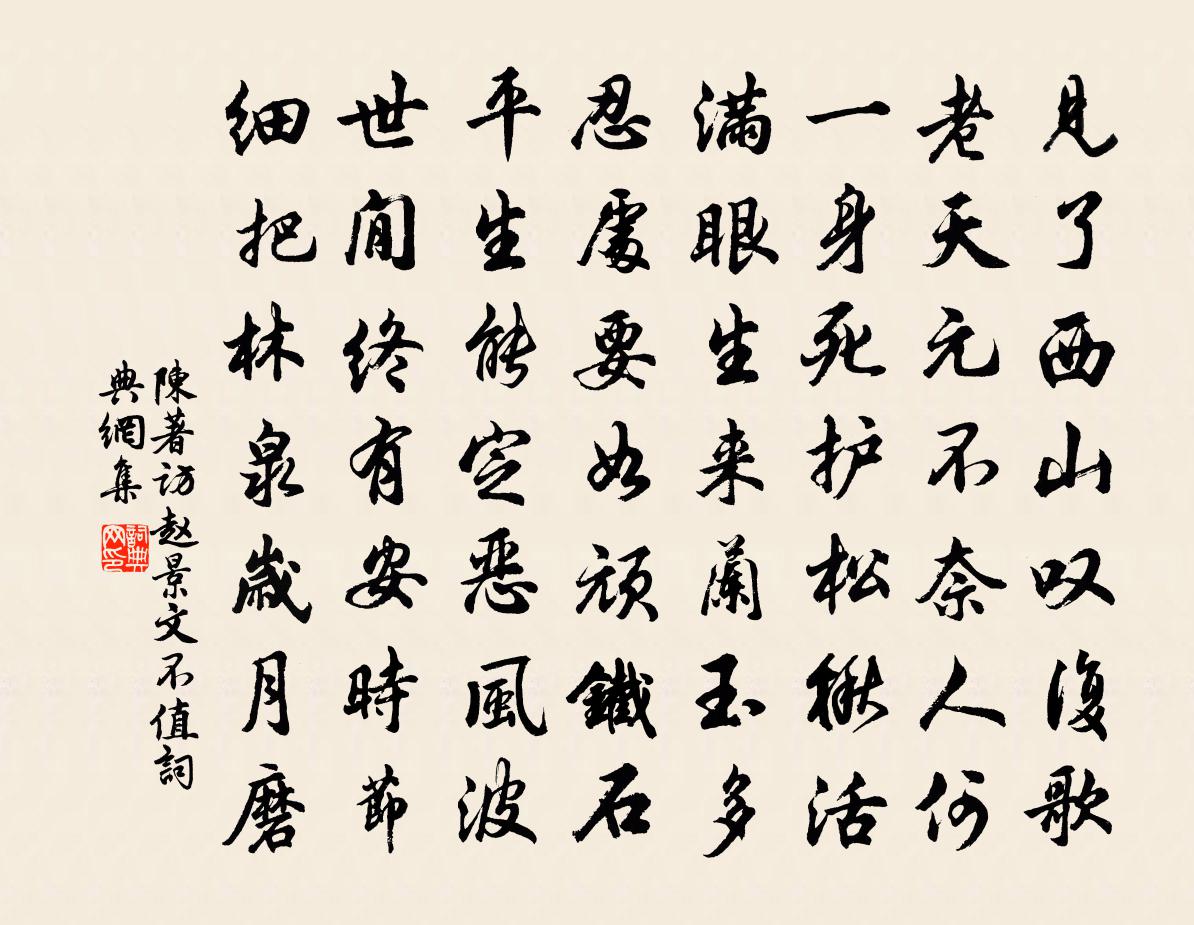 見了西山叹復歌
老天元不奈人何
一身死护松楸活
滿眼生来蘭玉多
忍處要如頑鐵石
平生能定惡風波
世間終有安時節
細把林泉歲月磨
陳著訪赵景文不值詞
典網集
詞典
网印